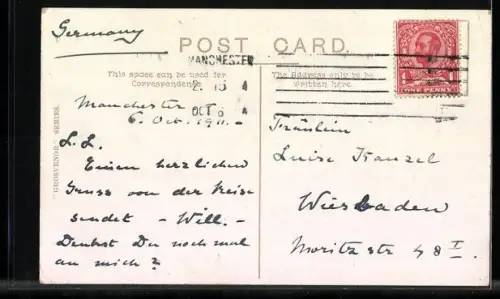 Germany
POST CARD.
MANCHESTER
This space can be used for
Correspondence
The Address only to be
written here
2 15
OCT 6
ONE PENNY
"GROSVENOR" SERIES.
Manchester
6. Oct. 1911.-
L. L.
Einen herzlichen
Gruss von der Reise
sendet - Will. -
Denkst Du noch mal
an mich?
Fräulein
Luise Kanzel
Wiesbaden
Moritzstr 48 I